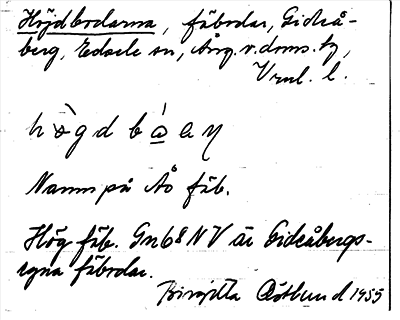 Höjdbodarna, fäbodar, Gideå-
berg, Edsele sn, Ång. v. doms. tg,
Vrnl. l.
hògd bá a η
Namn på Ås fäb.
Hög fäb. Gn68NV är Gideåbergs-
egna fäbodar.
Birgitta Östlund 1955